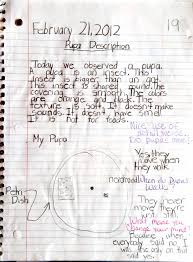 19
February 21, 2012
Pupa Description
Today we observed a pupa.
A pupa is an insect. This
insect is bigger than an ant.
This insect is shaped round. The
covering is smooth. The colors
are orange and black. The
texture is soft. It doesn't make
sounds. It doesn't have smell.
It is not for foods.
Nice use of
My Pupa
Yes they
move when
they walk
Do pupas
walk?
Petri
Dish
They never
move they
just still.
What made you
change your mind?
Because when
everybody said no I
was the only on that
said yes!